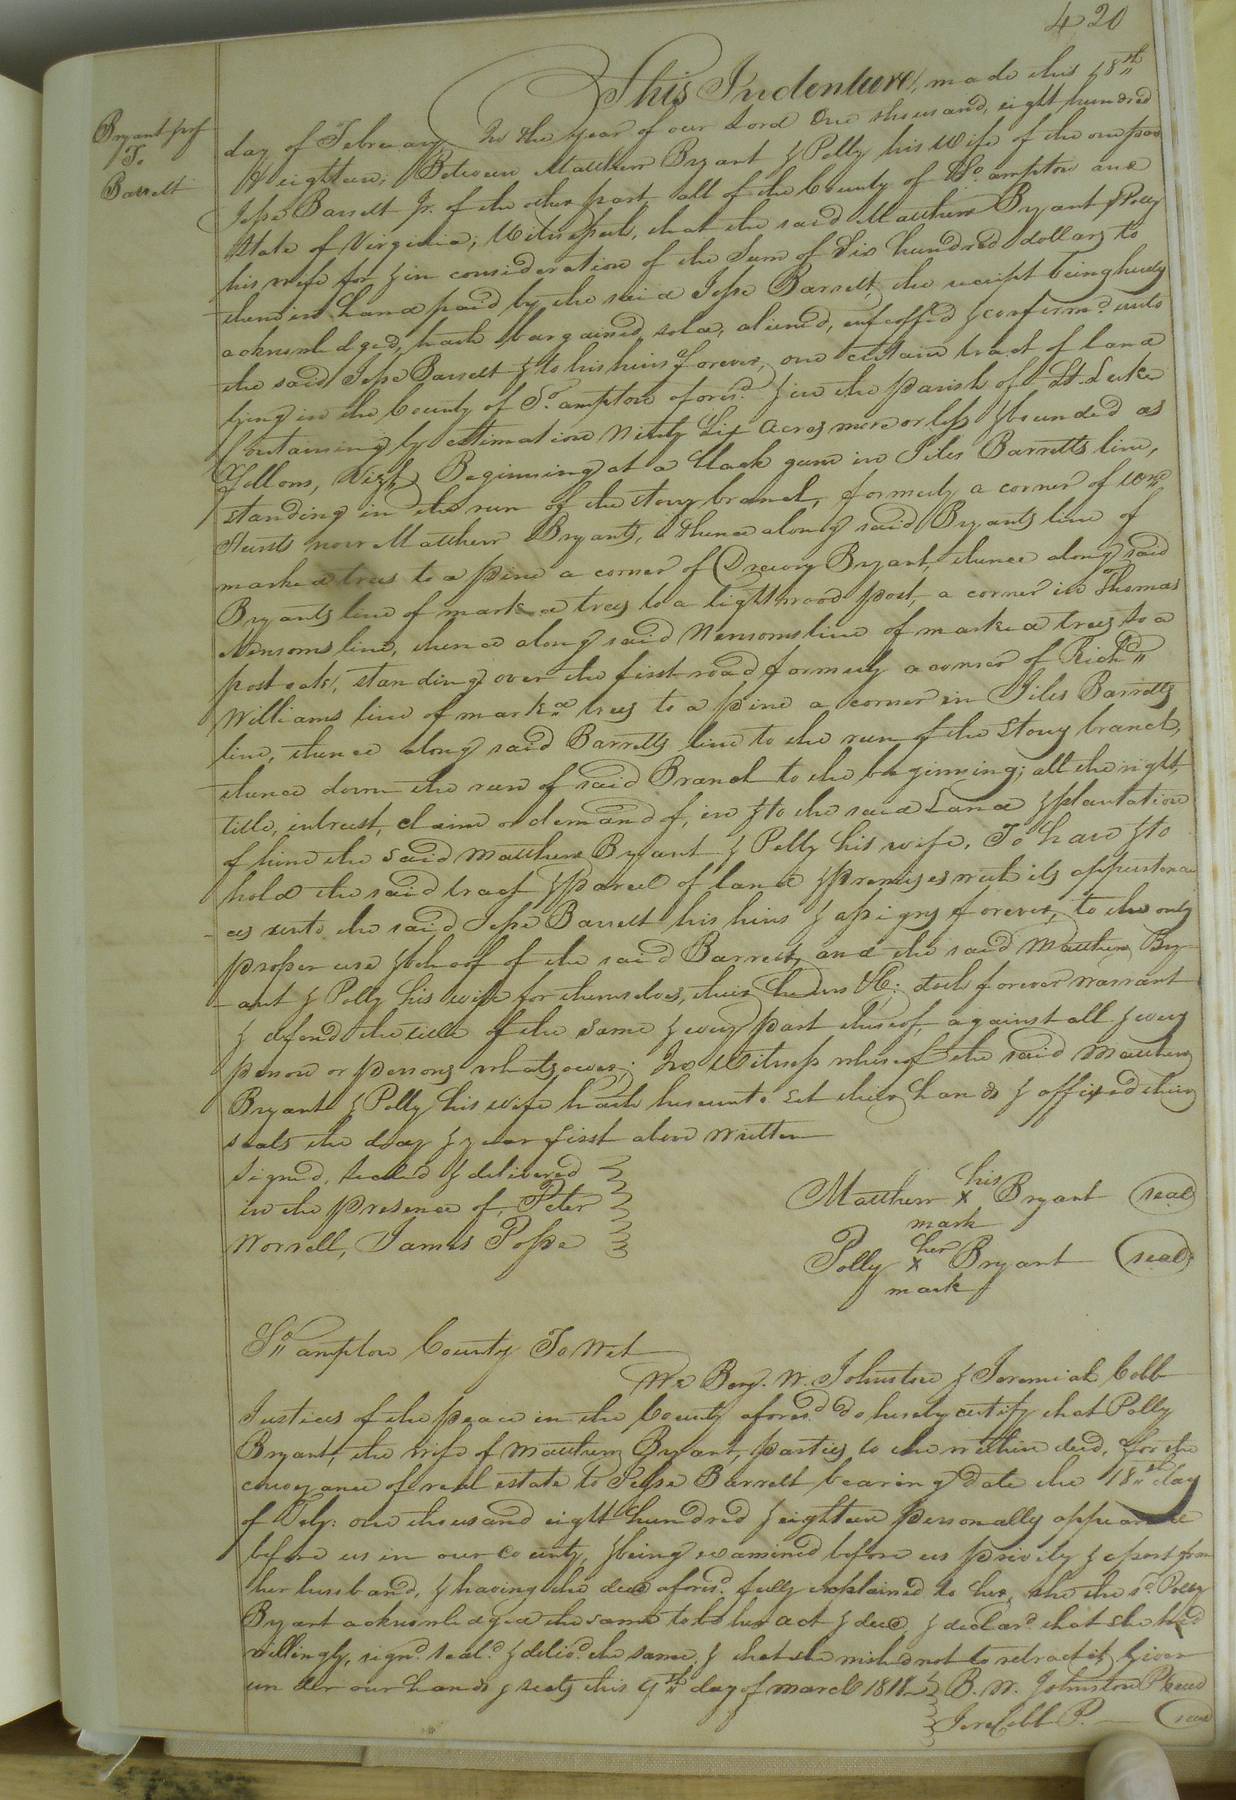 420
Bryant &
To
Barrett
This Indenture, made this 18th
day of February In the year of our Lord One thousand, eight hundred
& eighteen, Between Matthew Bryant & Polly his Wife of the one part
Jesse Barrett Jr. of the other part all of the County of So.ampton and
State of Virginia, Witnesseth, that the said Matthew Bryant & Polly
his wife for & in consideration of the Sum of Six hundred dollars to
them in hand paid by the said Jesse Barrett, the receipt being hereby
acknowledged, hath bargained, sold, aliened, enfeoffed & confirmd. unto
the said Jesse Barrett & to his heirs forever, one certain tract of land
lying in the County of So.ampton aforesd. & in the parish of St. Luke
Containing by estimation Ninty Six Acres more or less & bounded as
follows, Vizt, Beginning at a black gum in Giles Barretts line,
standing in the run of the stony branch, formerly a corner of Wm.
Hursts now Matthew Bryants, thence along said Bryants line of
marked trees to a pine a corner of Drewry Bryant, thence along said
Bryants line of marked trees to a lightwood post, a corner in Thomas
Newsoms line, thence along said Newsoms line of marked trees to a
post oak, standing over the first road formerly a corner of Richd.
Williams line of marked trees to a pine a corner in Giles Barretts
line, thence along said Barretts line to the run of the Stony branch,
thence down the run of said Branch to the beginning; all the right,
title, intrest, claim or demand of, in & to the said Land & plantation
of him the said Matthew Bryant & Polly his wife, To have & to
hold the said tract & parcel of land & premises with its appurtenan
ces unto the said Jesse Barrett his heirs & assigns forever, to the only
proper use & behoof of the said Barrett, and the said Matthew Bry-
ant & Polly his wife for themselves, their heirs &C: doth forever warrant
& defend the title of the same & every part thereof, against all & every
person or persons whatsoever; In Witness whereof the said Matthew
Bryant & Polly his wife hath hereunto set their hands & affixed their
seals the day & year first above written
Signed, sealed & delivered
in the presence of, Peter
Worrell, James Pope
his
Matthew x Bryant seal
mark
her
Polly x Bryant seal
mark
So.ampton County To Wit
We Benj. W. Johnston & Jeremiah Cobb
Justices of the peace in the County aforesd. do hereby certify that Polly
Bryant, the wife of Matthew Bryant, parties to the within deed, for the
conveyance of real estate to Jesse Barrett bearing date the 18th day
of Feby: one thousand eight hundred & eighteen personally appeared
before us in our county, & being examined before us privily & apart from
her husband, & having the deed aforesd. fully explained to her, she the sd. Polly
Bryant acknowledged the same to be her act & deed, & declard. that she had
willingly, signd. seald. & delivd. the same, & that she wished not to retract it, Given
under our hands & seals this 9th day of march 1818 B. W. Johnston P seal
Jere Cobb P. seal